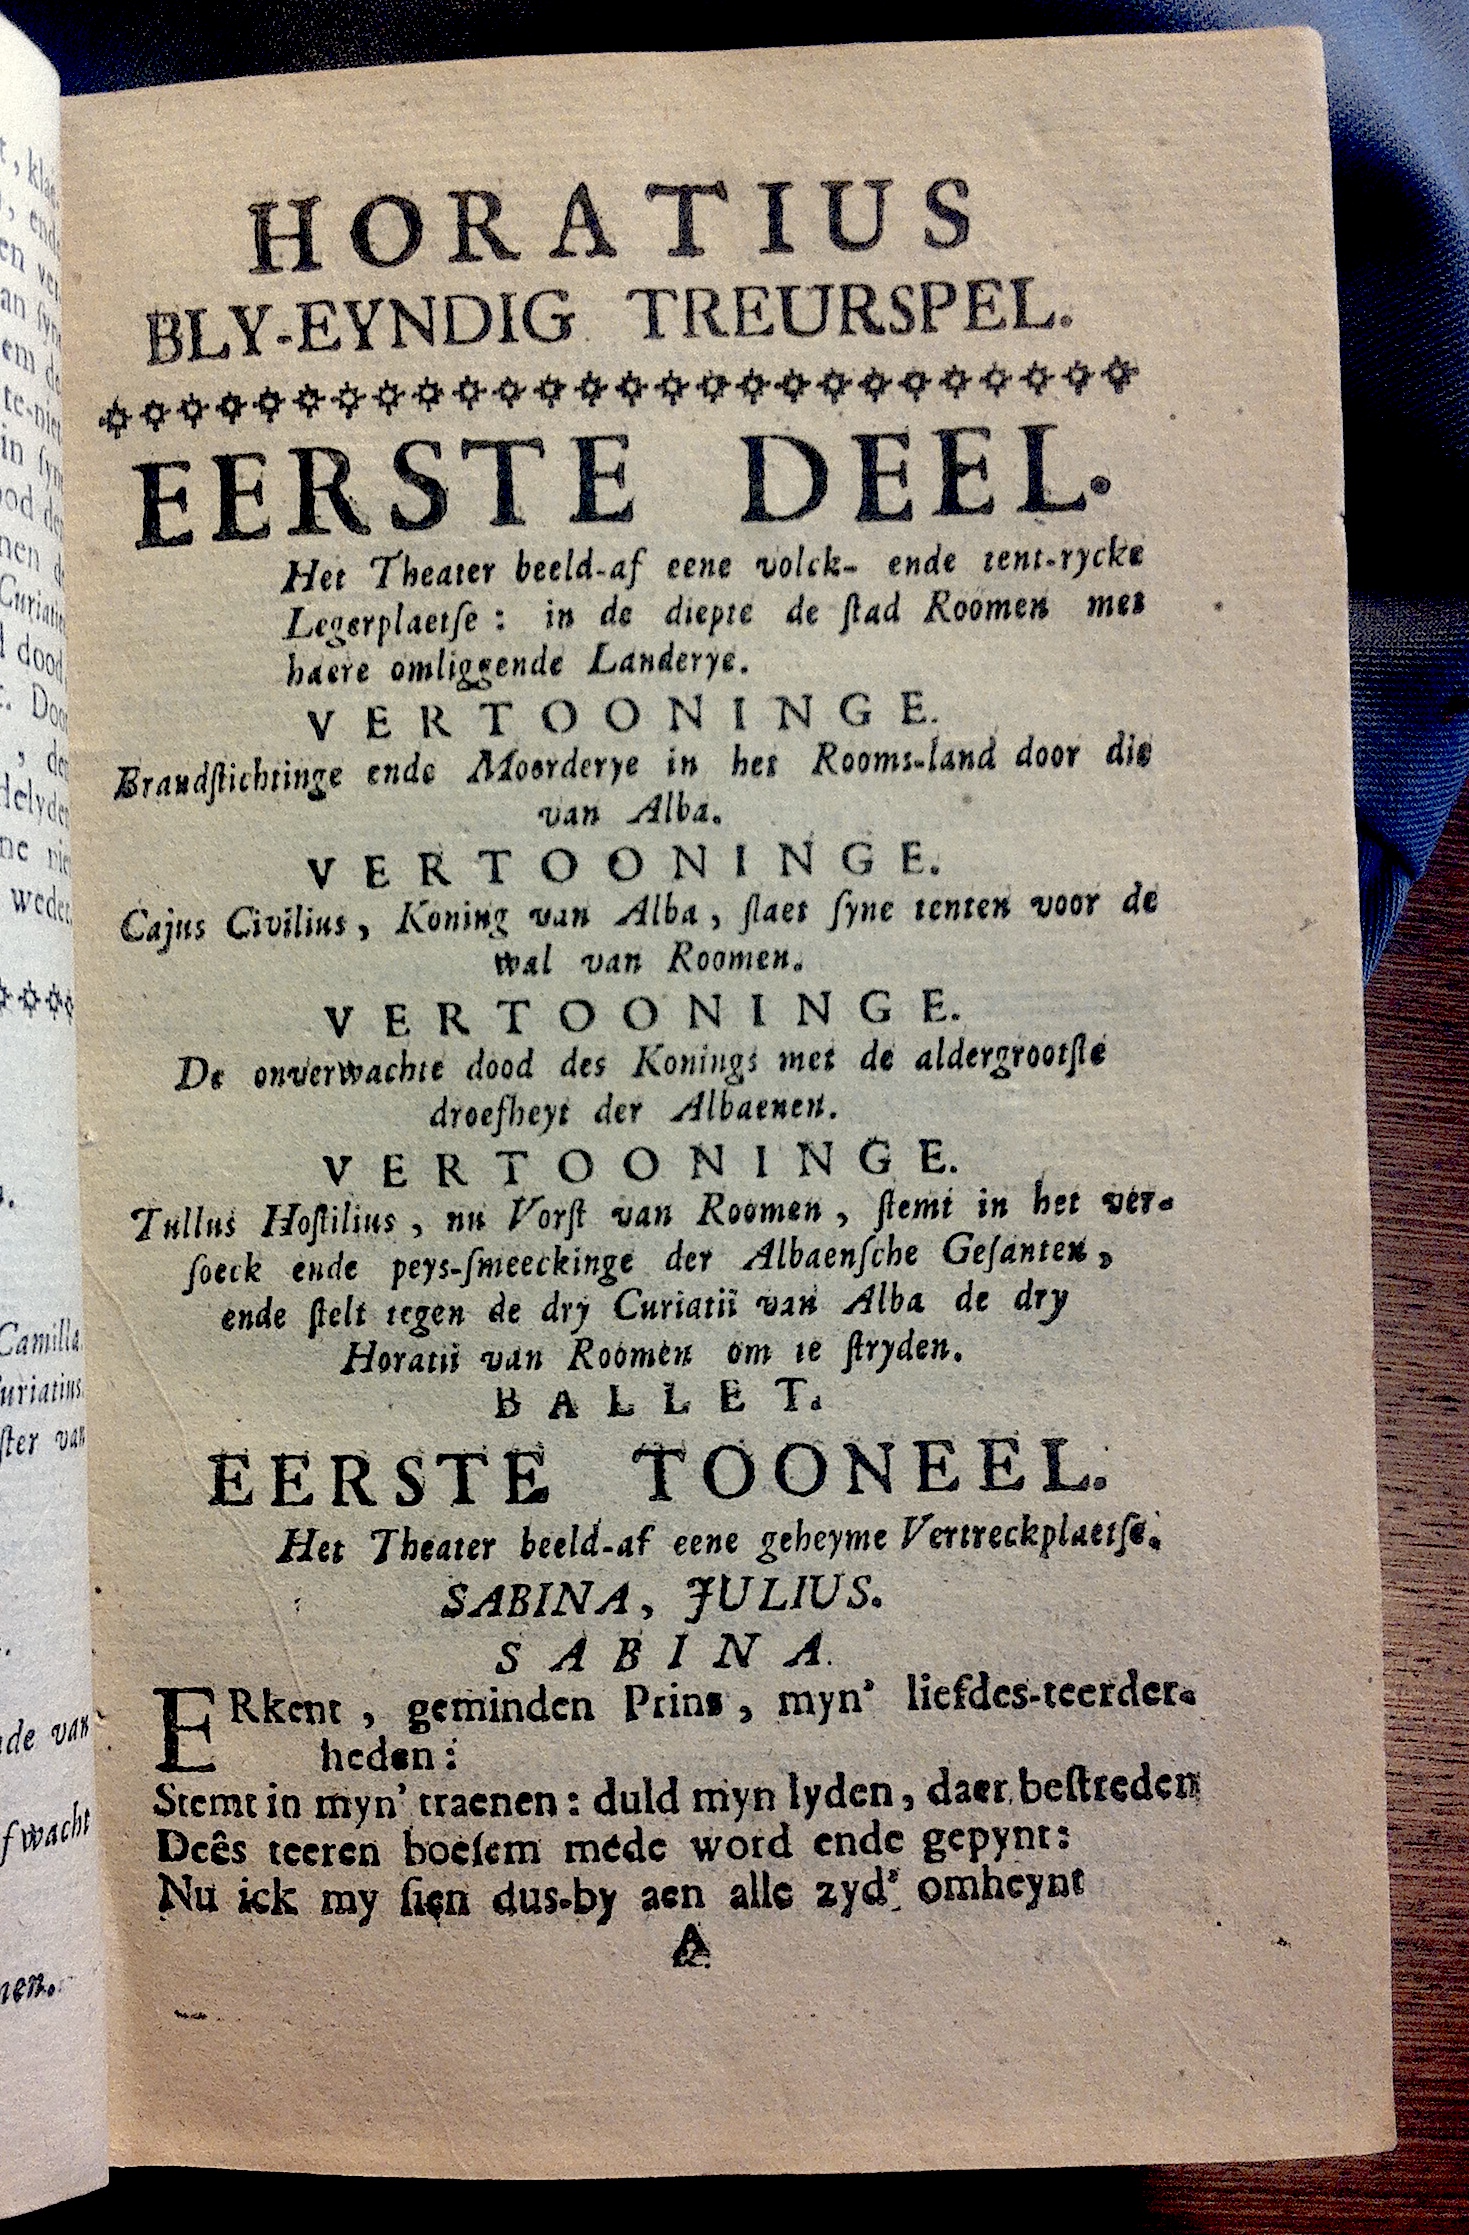 HORATIUS
BLY-EYNDIG TREURSPEL.
EERSTE DEEL.
Het Theater beeld-af eene volck- ende tent-rycke
Legerplaetſe : in de diepte de ſtad Roomen met
haere omliggende Landerye.
VERTOONINGE.
Brandſtichtinge ende Moorderye in het Rooms-land door die
van Alba.
VERTOONINGE.
Cajus Civilius, Koning van Alba, ſlaet ſyne tenten voor de
wal van Roomen.
VERTOONINGE.
De onverwachte dood des Konings met de aldergrootſte
droefheyt der Albaenen.
VERTOONINGE.
Tullus Hoſtilius, nu Vorſt van Roomen, ſtemt in het ver-
ſoeck ende peys-ſmeeckinge der Albaenſche Geſanten,
ende ſtelt tegen de dry Curiatii van Alba de dry
Horatii van Roomen om te ſtryden.
BALLET.
EERSTE TOONEEL.
Het Theater beeld-af eene geheyme Vertreckplaetſe.
SABINA, JULIUS.
SABINA.
ERkent, geminden Prins, myn' liefdes-teerder-
heden:
Stemt in myn' traenen: duld myn lyden, daer beſtreden
Deês teeren boeſem mede word ende gepynt:
Nu ick my ſien dus-by aen alle zyd' omheynt
A